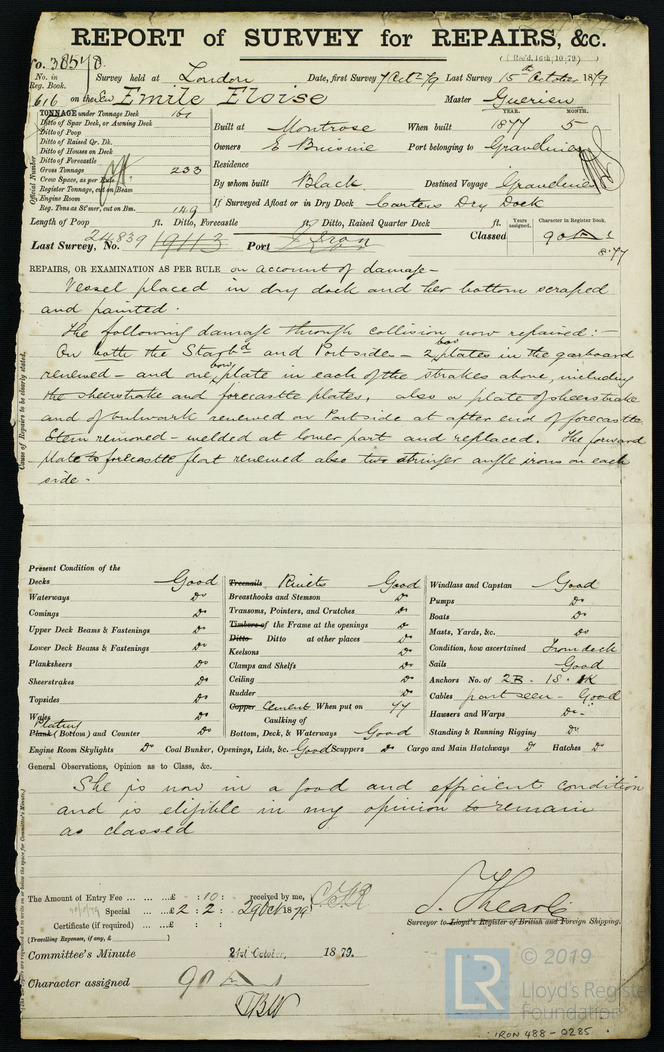 REPORT of SURVEY for REPAIRS, &c.
(Rec'd. 16th 10.79)
No. 38578.
No. in Reg. Book. Survey held at London Date, first Survey 7 Oct 79 Last Survey 15th October 1879
616 on the Emile Eloise Master Guerien
TONNAGE under Tonnage Deck
Ditto of Spar Deck, or Awning Deck
Ditto of Poop
Ditto of Raised Qr. Dk.
Ditto of Houses on Deck
Ditto of Forecastle
Gross Tonnage 233
Crew Space, as per Rule
Register Tonnage, cut on Beam
Engine Room
Reg. Tons as St'mer, cut on Bm. 149
Official Number
YEAR. MONTH.
Built at Montrose When built 1877 5
Owners E Port belonging to
Residence
By whom built Black Destined Voyage
If Surveyed Afloat or in Dry Dock Dry Dock
Length of Poop ft. Ditto, Forecastle ft. Ditto, Raised Quarter Deck ft.
Years assigned. Character in Register Book.
Last Survey, No. 24839 19113 Port Iron Classed 90 A 1
8.77
REPAIRS, OR EXAMINATION AS PER RULE on account of damage -
Vessel placed in dry dock and her bottom scraped
and painted.
The following damage through collision now repaired: -
On both the Starbd and Port sides - 2 bow plates in the garboard
renewed - and one bow plate in each of the strakes above, including
the sheerstrake and forecastle plates, also a plate of sheerstrake
and of bulwark renewed on Port side at after end of forecastle
Stem removed - welded at lower part and replaced. The forward
plate to forecastle flat renewed also two stringer angle irons on each
side.
Cause of Repairs to be clearly stated.
Present Condition of the
Decks Good
Waterways Do
Comings Do
Upper Deck Beams & Fastenings Do
Lower Deck Beams & Fastenings Do
Planksheers Do
Sheerstrakes Do
Topsides Do
Wales
Plating
Plank (Bottom) and Counter Do
Treenails Rivets Good
Breasthooks and Stemson Do
Transoms, Pointers, and Crutches Do
Timbers of the Frame at the openings Do
Ditto Ditto at other places Do
Keelsons Do
Clamps and Shelfs Do
Ceiling Do
Rudder Do
Copper Cement When put on 77
Caulking of
Bottom, Deck, & Waterways Good
Windlass and Capstan Good
Pumps Do
Boats Do
Masts, Yards, &c. Do
Condition, how ascertained From deck
Sails Good
Anchors No. of 2B. 1S. 1K
Cables part seen - Good
Hawsers and Warps Do
Standing & Running Rigging Do
Engine Room Skylights Do Coal Bunker, Openings, Lids, &c. Good Scuppers Do Cargo and Main Hatchways Do Hatches Do
General Observations, Opinion as to Class, &c.
She is now in a good and efficient condition
and is eligible in my opinion to remain
as classed
The Amount of Entry Fee ... £ : 10 : received by me,
Special ... £ 2 : 2 : 29 Oct 1879
Certificate (if required) ... £ : :
(Travelling Expenses, if any, £ )
Surveyor to Lloyd's Register of British and Foreign Shipping.
Committee's Minute 21st October, 1879.
Character assigned 90 A
© 2019
LR
Lloyd's Register
Foundation
IRON 488-0285